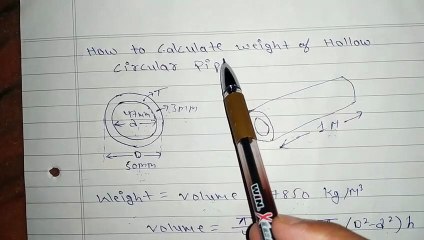 How to Calculate weight of Hollow
Circular Pip
T
3mm
47mm
d
D
50mm
1 M
Weight = volume 7850 Kg/M³
volume = π (D²-d²) h
WIN